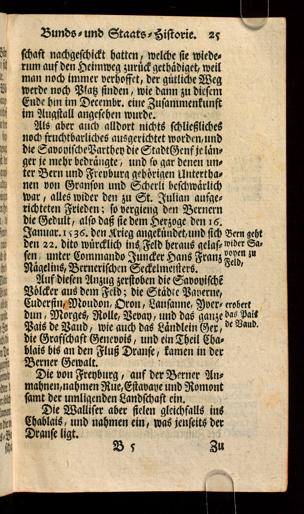 Bunds- und Staats-Historie. 25
schaft nachgeschickt hatten, welche sie wiede-
rum auf den Heimweg zurück gethädiget, weil
man noch immer verhoffet, der gütliche Weg
werde noch Platz finden, wie dann zu diesem
Ende hin im Decembr. eine Zusammenkunft
im Augstall angesehen wurde.
Als aber auch alldort nichts schließliches
noch fruchtbarliches ausgerichtet worden, und
die Savoyische Parthey die Stadt Genf je län-
ger je mehr bedrängte, und so gar denen un-
ter Bern und Freyburg gehörigen Unterha-
nen von Granson und Scherli beschwärlich
war, alles wider den zu St. Julian aufge-
richteten Frieden; so vergieng den Bernern
die Gedult, also daß sie dem Herzoge den 16.
Januar. 1536. den Krieg angekündet, und sich
den 22. dito würcklich ins Feld heraus gelas-
sen unter Commando Juncker Hans Franz
Nägelins, Bernerischen Seckelmeisters.
Bern geht
wider Sa-
voyen zu
Feld,
Auf diesen Anzug zerstoben die Savoyische
Völcker aus dem Feld: die Städte Paverne,
Cuderfin, Mondon, Oron, Lausanne, Yver-
dun, Morges, Rolle, Vevay, und das ganze
Pais de Vaud, wie auch das Ländlein Gex,
die Grafschaft Genevois, und ein Theil Cha-
blais bis an den Fluß Dranse, kamen in der
Berner Gewalt.
erobert
das Pais
de Vaud.
Die von Freyburg, auf der Berner An-
mahnen, nahmen Rue, Estavaye und Romont
samt der umligenden Landschaft ein.
Die Walliser aber fielen gleichfalls ins
Chablais, und nahmen ein, was jenseits der
Dranse ligt.
B 5 Zu